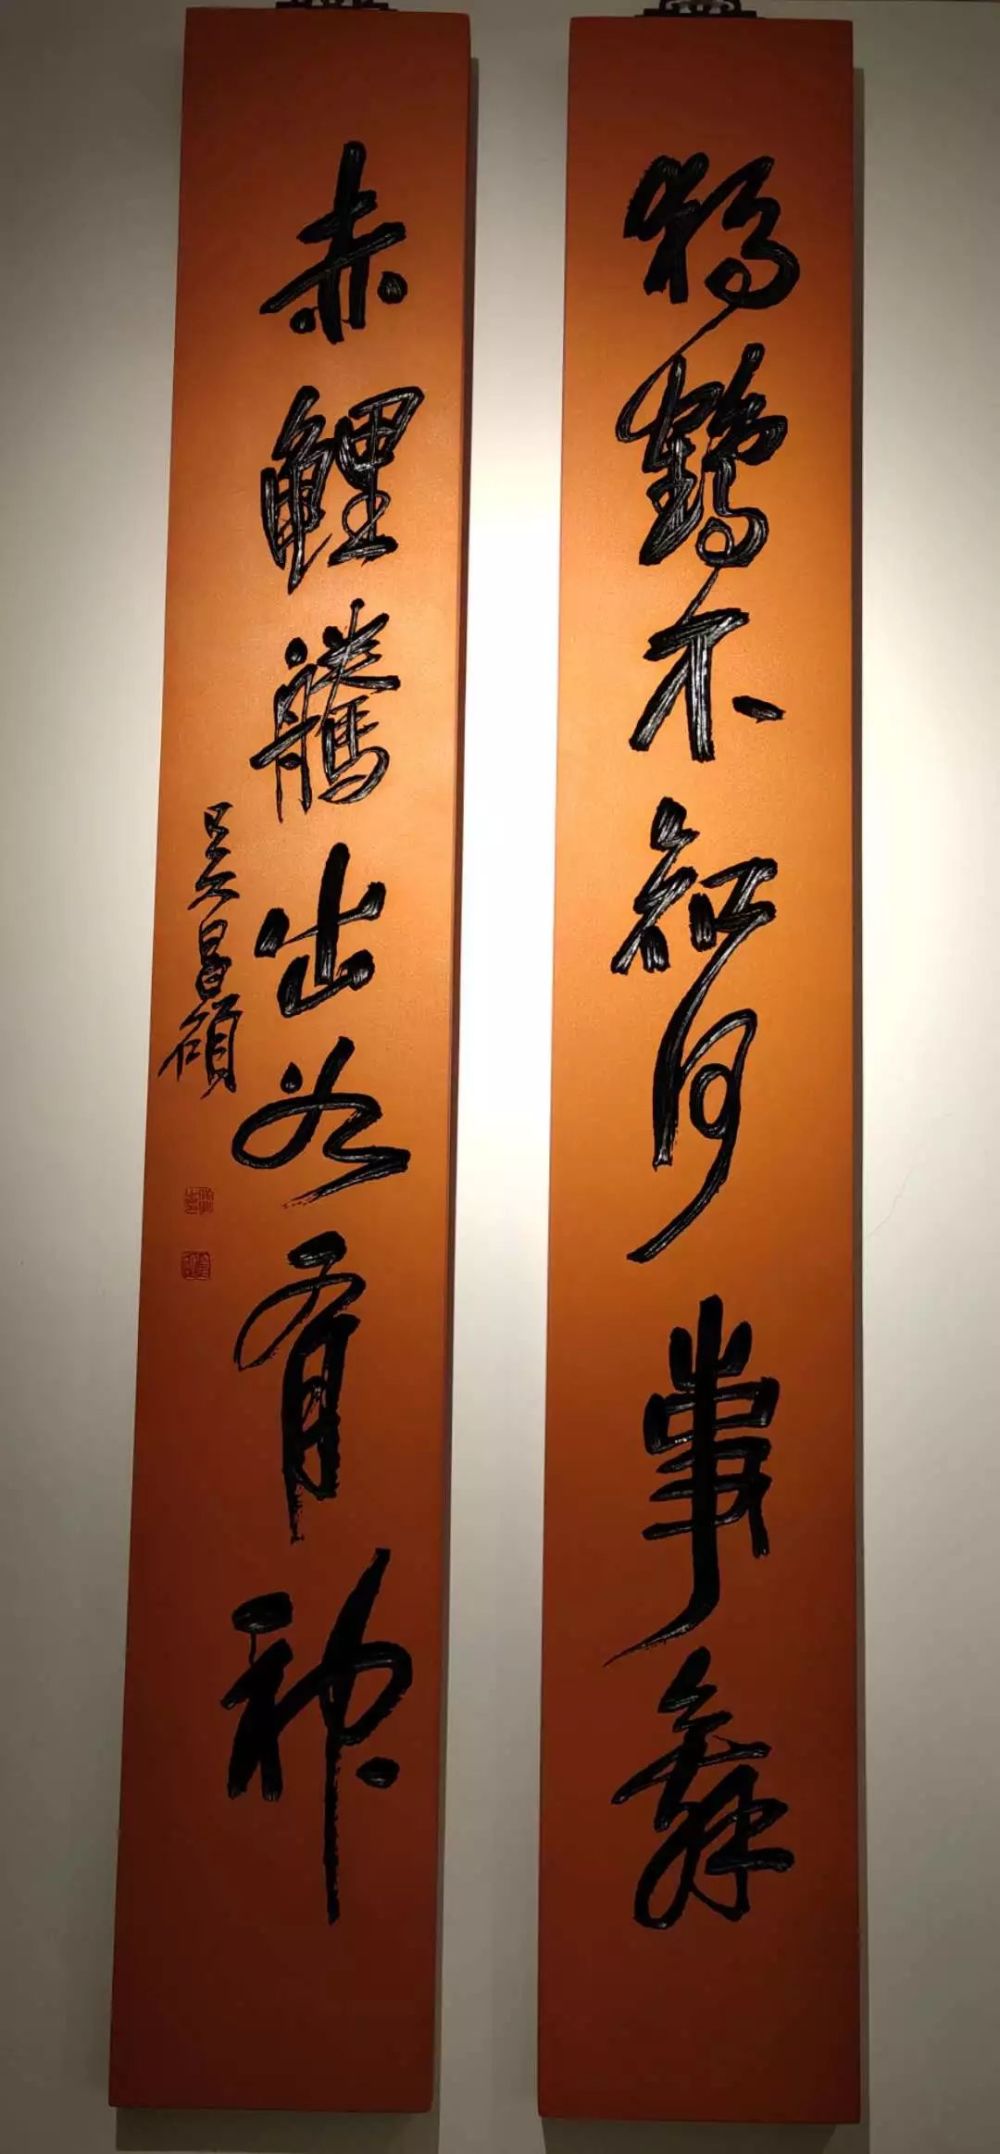 獨鶴不知何事舞
赤鯉騰出如有神
吳昌碩